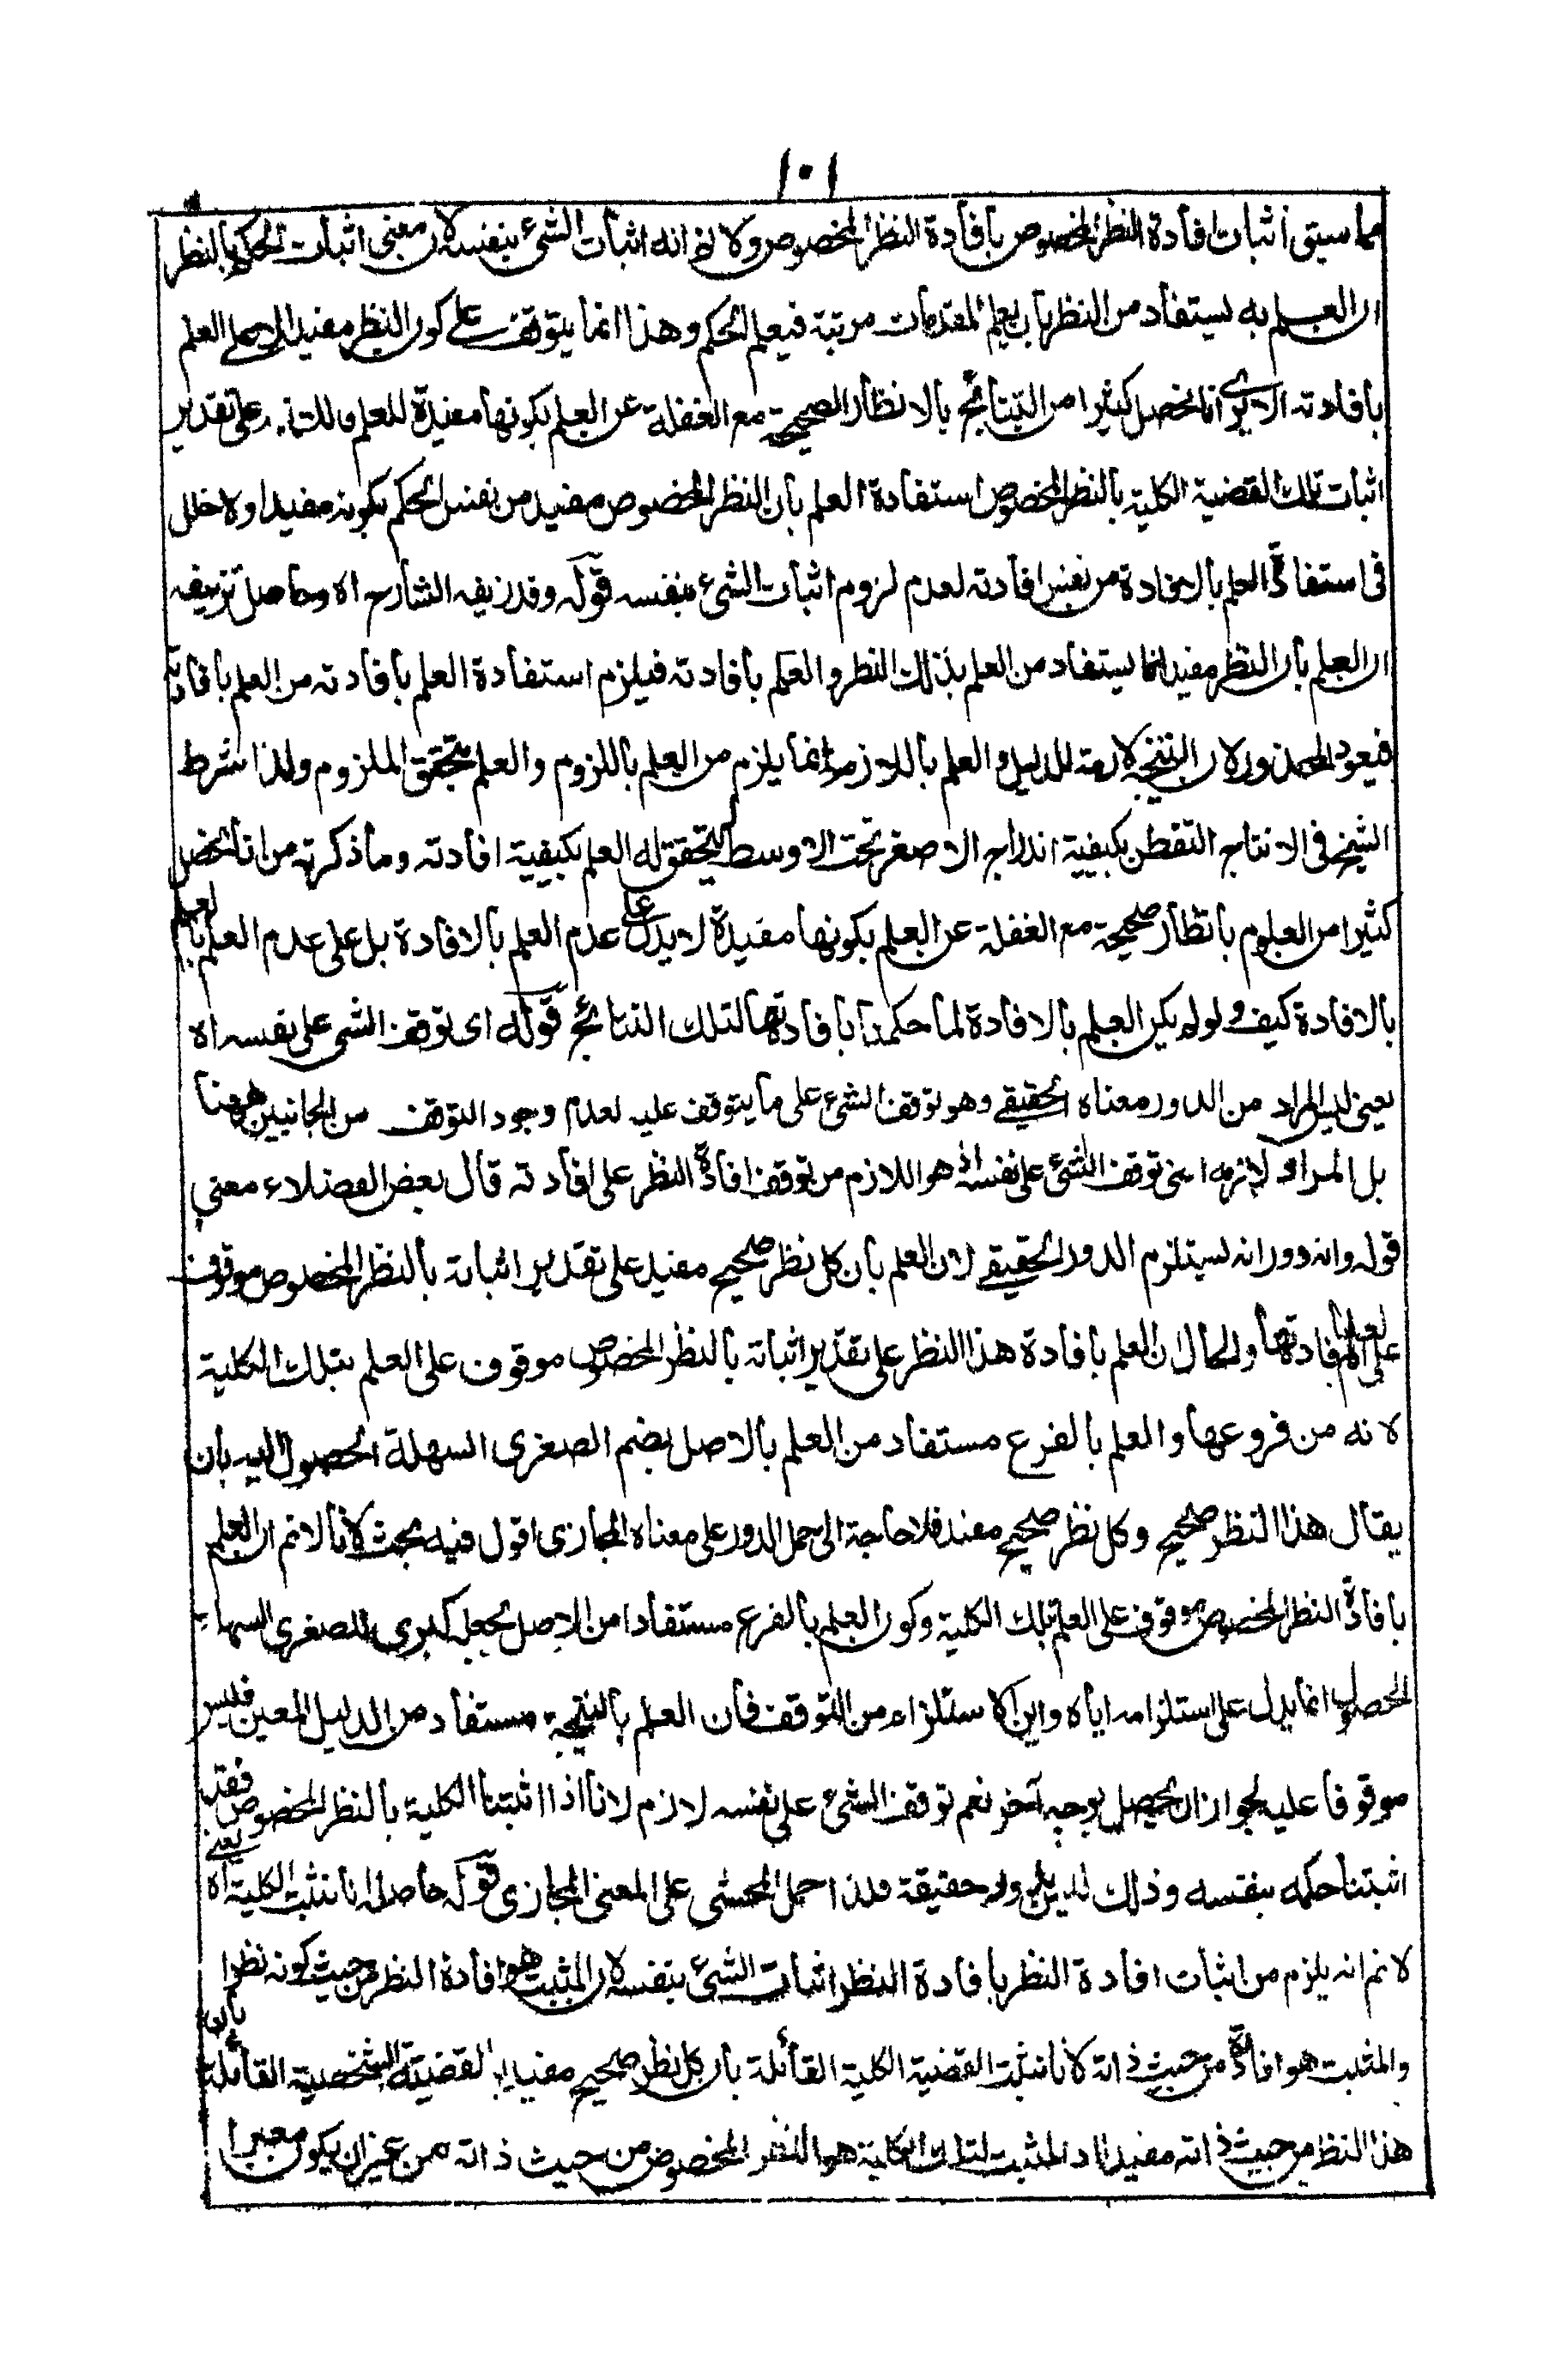 ١٠١
مما سبق اثبات افادة النظر المخصوص بافادة النظر المخصوص ولا نم انه اثبات الشئ بنفسه لان معنى اثبات الحكم بالنظر
ان العلم به يستفاد من النظر بان يعلم المقدمات مرتبة فيعلم الحكم وهذا انما يتوقف على كون النظر مفيدا لا على العلم
بافادته الا يرى انا نحصل كثيرا من النتائج بالانظار الصحيحة مع الغفلة عن العلم بكونها مفيدة للعلم على تقدير
اثبات تلك القضية الكلية بالنظر المخصوص استفادة العلم بان النظر المخصوص مفيد من نفس الحكم بكونه مفيدا ولا خلل
فى استفادة العلم بالافادة من نفس افادته لعدم لزوم اثبات الشئ بنفسه قوله وقد زيفه الشارح اه وحاصل تزييفه
ان العلم بان النظر مفيد انما يستفاد من العلم بذلك النظر والعلم بافادته فيلزم استفادة العلم بافادته من العلم بافادته
فيعود المحذور لان النتيجة لازمة للدليل والعلم باللازم انما يلزم من العلم باللزوم والعلم بتحقق الملزوم ولذا شرط
الشيخ فى الانتاج التفطن بكيفية اندراج الاصغر تحت الاوسط ليتحقق له العلم بكيفية افادته وما ذكرته من انا نحصل
كثيرا من العلوم بانظار صحيحة مع الغفلة عن العلم بكونها مفيدة لا يدل على عدم العلم بالافادة بل على عدم العلم بالعلم
بالافادة كيف ولو لم يكن العلم بالافادة لما حكمنا بافادتها لتلك النتائج قوله اى توقف الشئ على نفسه اه
يعنى ليس المراد من الدور معناه الحقيقے وهو توقف الشئ على ما يتوقف عليه لعدم وجود التوقف من الجانبين ههنا
بل المراد لازمه اعنى توقف الشئ على نفسه اذ هو اللازم من توقف افادة النظر على افادته قال بعض الفضلاء معنى
قوله وانه دور انه يستلزم الدور الحقيقے لان العلم بان كل نظر صحيح مفيد على تقدير اثباته بالنظر المخصوص موقوف
على العلم بافادتها والحال ان العلم بافادة هذا النظر على تقدير اثباته بالنظر المخصوص موقوف على العلم بتلك الكلية
لانه من فروعها والعلم بالفرع مستفاد من العلم بالاصل بضم الصغرى السهلة الحصول اليه بان
يقال هذا النظر صحيح وكل نظر صحيح مفيد فلا حاجة الى حمل الدور على معناه المجازى اقول فيه بحث لانا لا نم ان العلم
بافادة النظر المخصوص موقوف على العلم بتلك الكلية وكون العلم بالفرع مستفادا من الاصل بجعله كبرى للصغرى السهلة
الحصول انما يدل على استلزامه اياه واين الاستلزام من التوقف فان العلم بالنتيجة مستفاد من الدليل المعين فليس
موقوفا عليه لجواز ان يحصل بوجه آخر نعم توقف الشئ على نفسه لازم لانا اذا اثبتنا الكلية بالنظر المخصوص فقد
اثبتنا حكمه بنفسه وذلك ليس بدور حقيقة فلذا حمل المحشى على المعنى المجازى قوله حاصله انا نثبت الكلية آه يعنے
لا نم انه يلزم من اثبات افادة النظر بافادة النظر اثبات الشئ بنفسه لان المثبت هو افادة النظر من حيث كونه نظرا
والمثبت هو افادته من حيث ذاته لانا نثبت القضية الكلية القائلة بان كل نظر صحيح مفيد بالقضية الشخصية القائلة بان
هذا النظر من حيث ذاته مفيد اذ المثبت لتلك الكلية هو النظر المخصوص من حيث ذاته من غير ان يكون معبرا